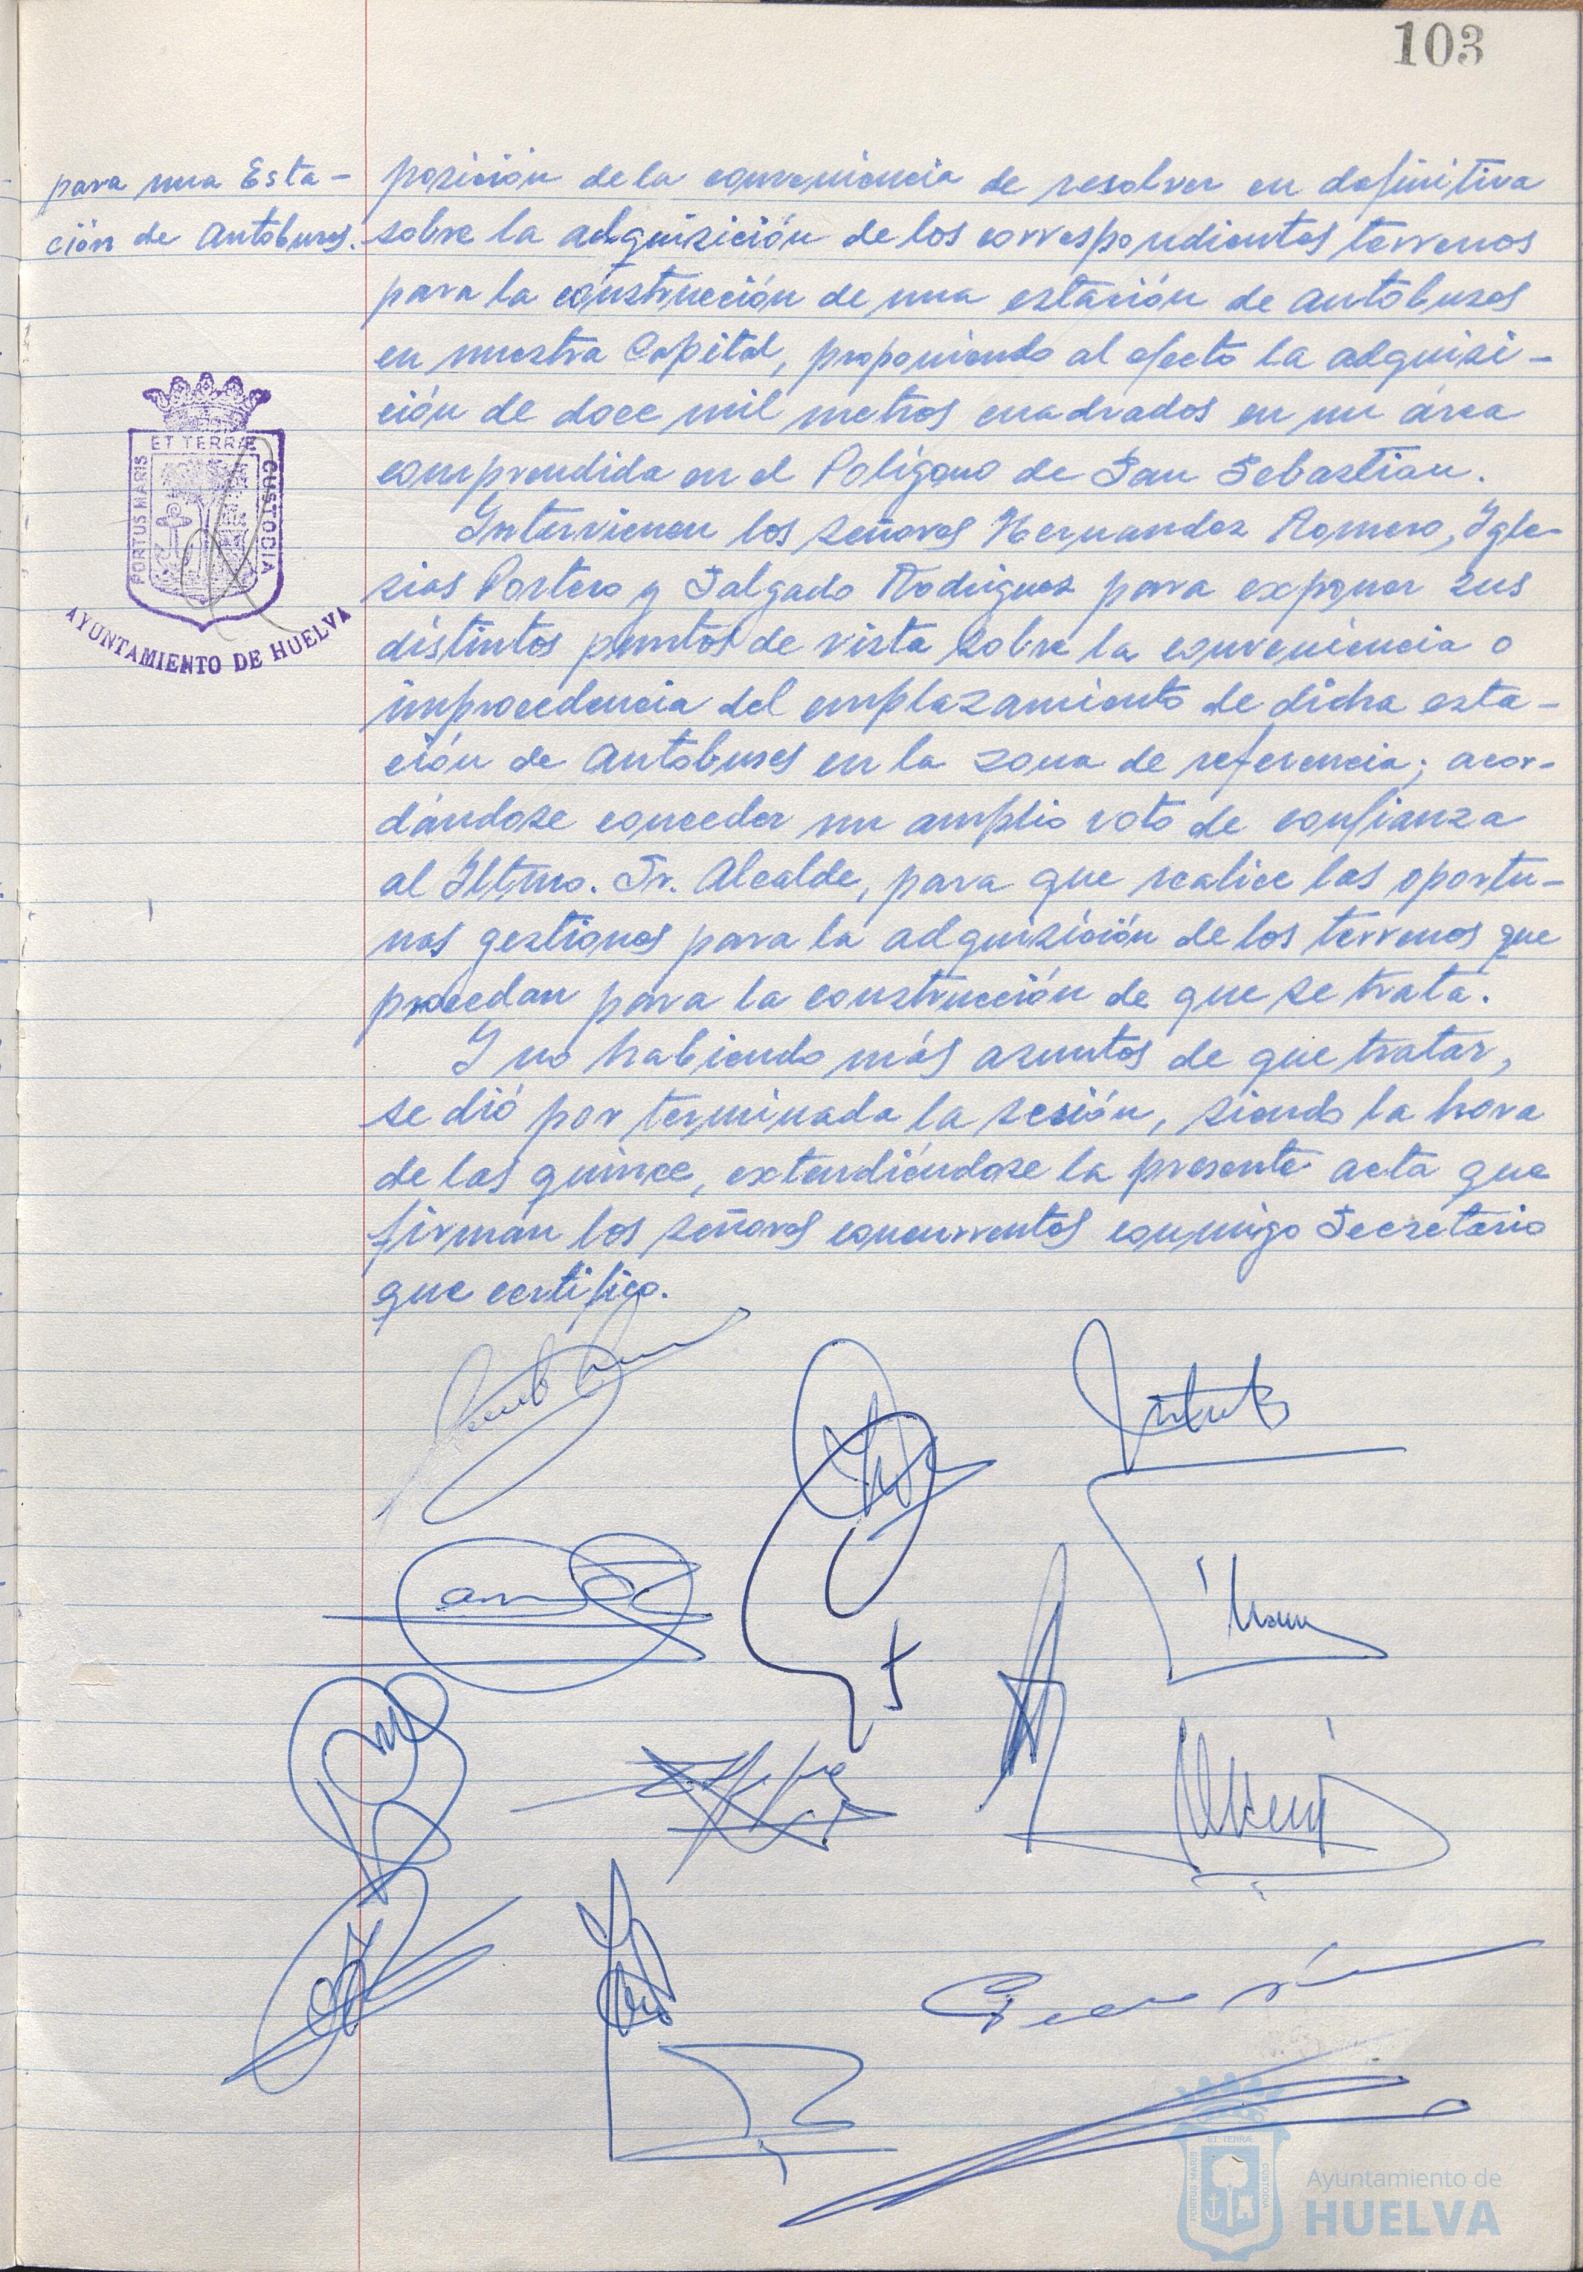 103
para una Esta-
ción de Autobuses.
posición de la conveniencia de resolver en definitiva
sobre la adquisición de los correspondientes terrenos
para la construcción de una estación de autobuses
en nuestra Capital, proponiendo al efecto la adquisi-
ción de doce mil metros cuadrados en un área
comprendida en el Polígono de San Sebastian.
Intervienen los señores Hernandez Romero, Igle-
sias Portero y Salgado Rodriguez para exponer sus
distintos puntos de vista sobre la conveniencia o
improcedencia del emplazamiento de dicha esta-
ción de Autobuses en la zona de referencia; acor-
dándose conceder un amplio voto de confianza
al Iltmo. Sr. Alcalde, para que realice las oportu-
nas gestiones para la adquisición de los terrenos que
procedan para la construcción de que se trata.
Y no habiendo más asuntos de que tratar,
se dió por terminada la sesión, siendo la hora
de las quince, extendiéndose la presente acta que
firman los señores concurrentes conmigo Secretario
que certifico.
PORTUS MARIS
ET TERRÆ
CUSTODIA
AYUNTAMIENTO DE HUELVA
PORTUS MARIS
ET TERRÆ
CUSTODIA
Ayuntamiento de
HUELVA